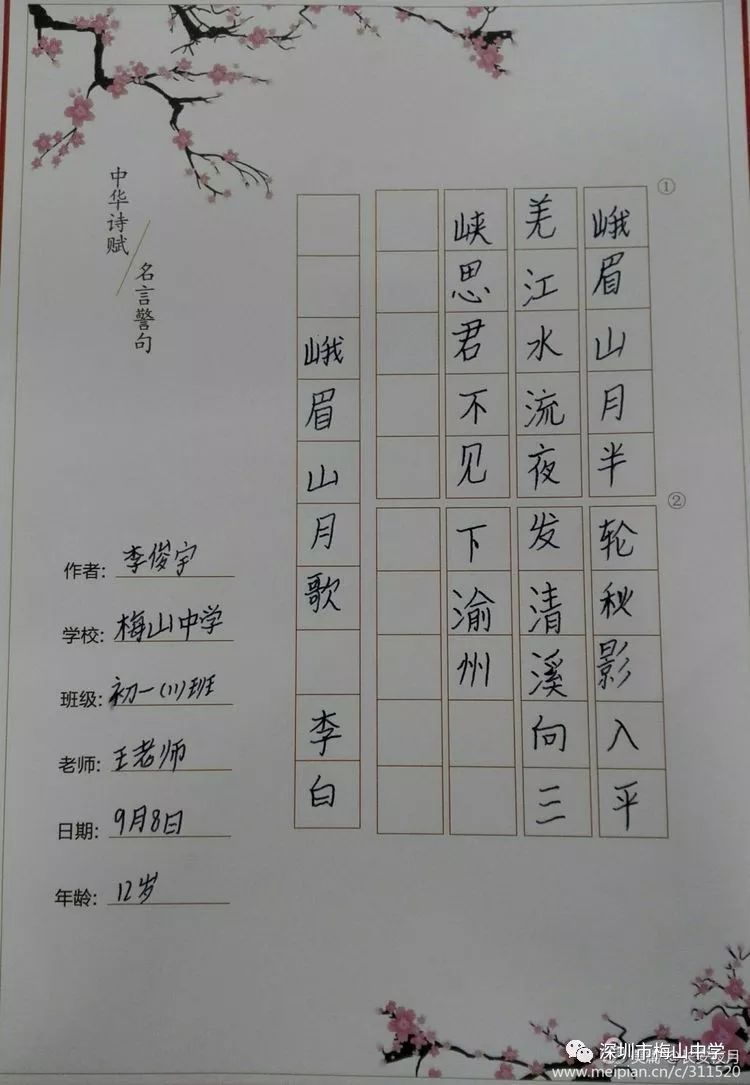 中华诗赋
名言警句
①
②
峨眉山月半轮秋影入平
羌江水流夜发清溪向三
峡思君不见下渝州
峨眉山月歌 李白
作者: 李俊宇
学校: 梅山中学
班级: 初一(1)班
老师: 王老师
日期: 9月8日
年龄: 12岁
深圳市梅山中学
www.meipian.cn/c/311520